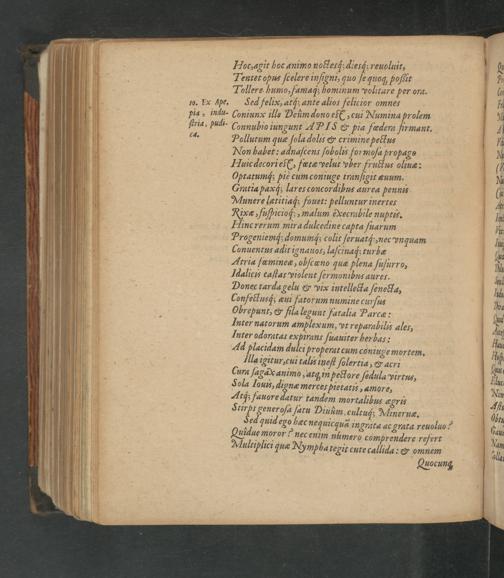 Hoc, agit hoc animo noctesq; diesq; reuoluit,
Tentet opus scelere insigni, quo se quoq; possit
Tollere humo, famaq; hominum volitare per ora.
10. Ex Ape,
pia, indu-
stria, pudi-
ca.
Sed felix, atq; ante alios felicior omnes
Coniunx illa Deûm dono est, cui Numina prolem
Connubio iungunt APIS & pia fœdera firmant.
Pollutum quæ sola dolis & crimine pectus
Non habet: adnascens sobolis formosa propago
Huic decori est, fœtæ velut vber fructus oliuæ:
Optatumq; piè cum coniuge transigit æuum.
Gratia paxq; lares concordibus aurea pennis
Munere lætitiaq; fouet: pelluntur inertes
Rixæ, suspicioq;, malum execrabile nuptis.
Hinc rerum mira dulcedine capta suarum
Progeniemq; domumq; colit seruatq;, nec vnquam
Conuentus adit ignauos, lasciuaq; turbæ
Atria fœmineæ, obscœno quæ plena susurro,
Idalicis castas violent sermonibus aures.
Donec tarda gelu & vix intellecta senecta,
Confectusq; æui fatorum numine cursus
Obrepunt, & fila legunt fatalia Parcæ:
Inter natorum amplexum, vt reparabilis ales,
Inter odoratas expirans suauiter herbas:
Ad placidam dulci properat cum coniuge mortem.
Illa igitur, cui talis inest solertia, & acri
Cura sagax animo, atq; in pectore sedula virtus,
Sola Iouis, dignæ merces pietatis, amore,
Atq; fauore datur tandem mortalibus ægris
Stirpi generosa satu Diuûm, cultuq; Mineruæ.
Sed quid ego hæc nequicquã ingrata ac grata reuoluo?
Quidue moror? nec enim numero comprendere refert
Multiplici quæ Nympha tegit cute callida: & omnem
Quocunq;